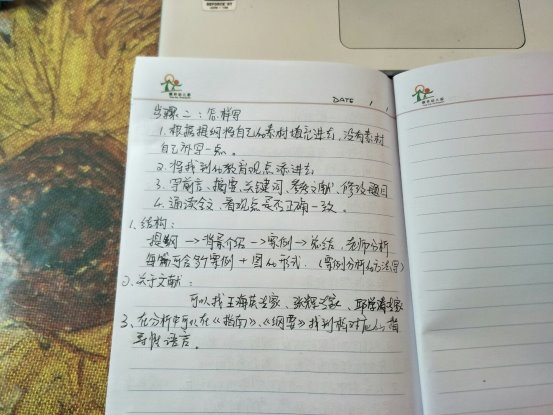 DATE
步骤二：怎样写
1. 根据提纲将自己的素材填充进去，没有素材
自己补写一点。
2. 将找到的教育观点添进去
3. 写前言、摘要、关键词、参考文献、修改题目
4. 通读全文，看观点是否正确一致。
1. 结构：
提纲 → 背景介绍 → 案例 → 总结，老师分析
每篇可含多个案例 + 图的形式．（案例分析的方法写）
2、关于文献：
可以找王海英专家、张辉专家、邱学青专家
3、在分析中可以在《指南》、《纲要》找到相对应的指
导性语言。